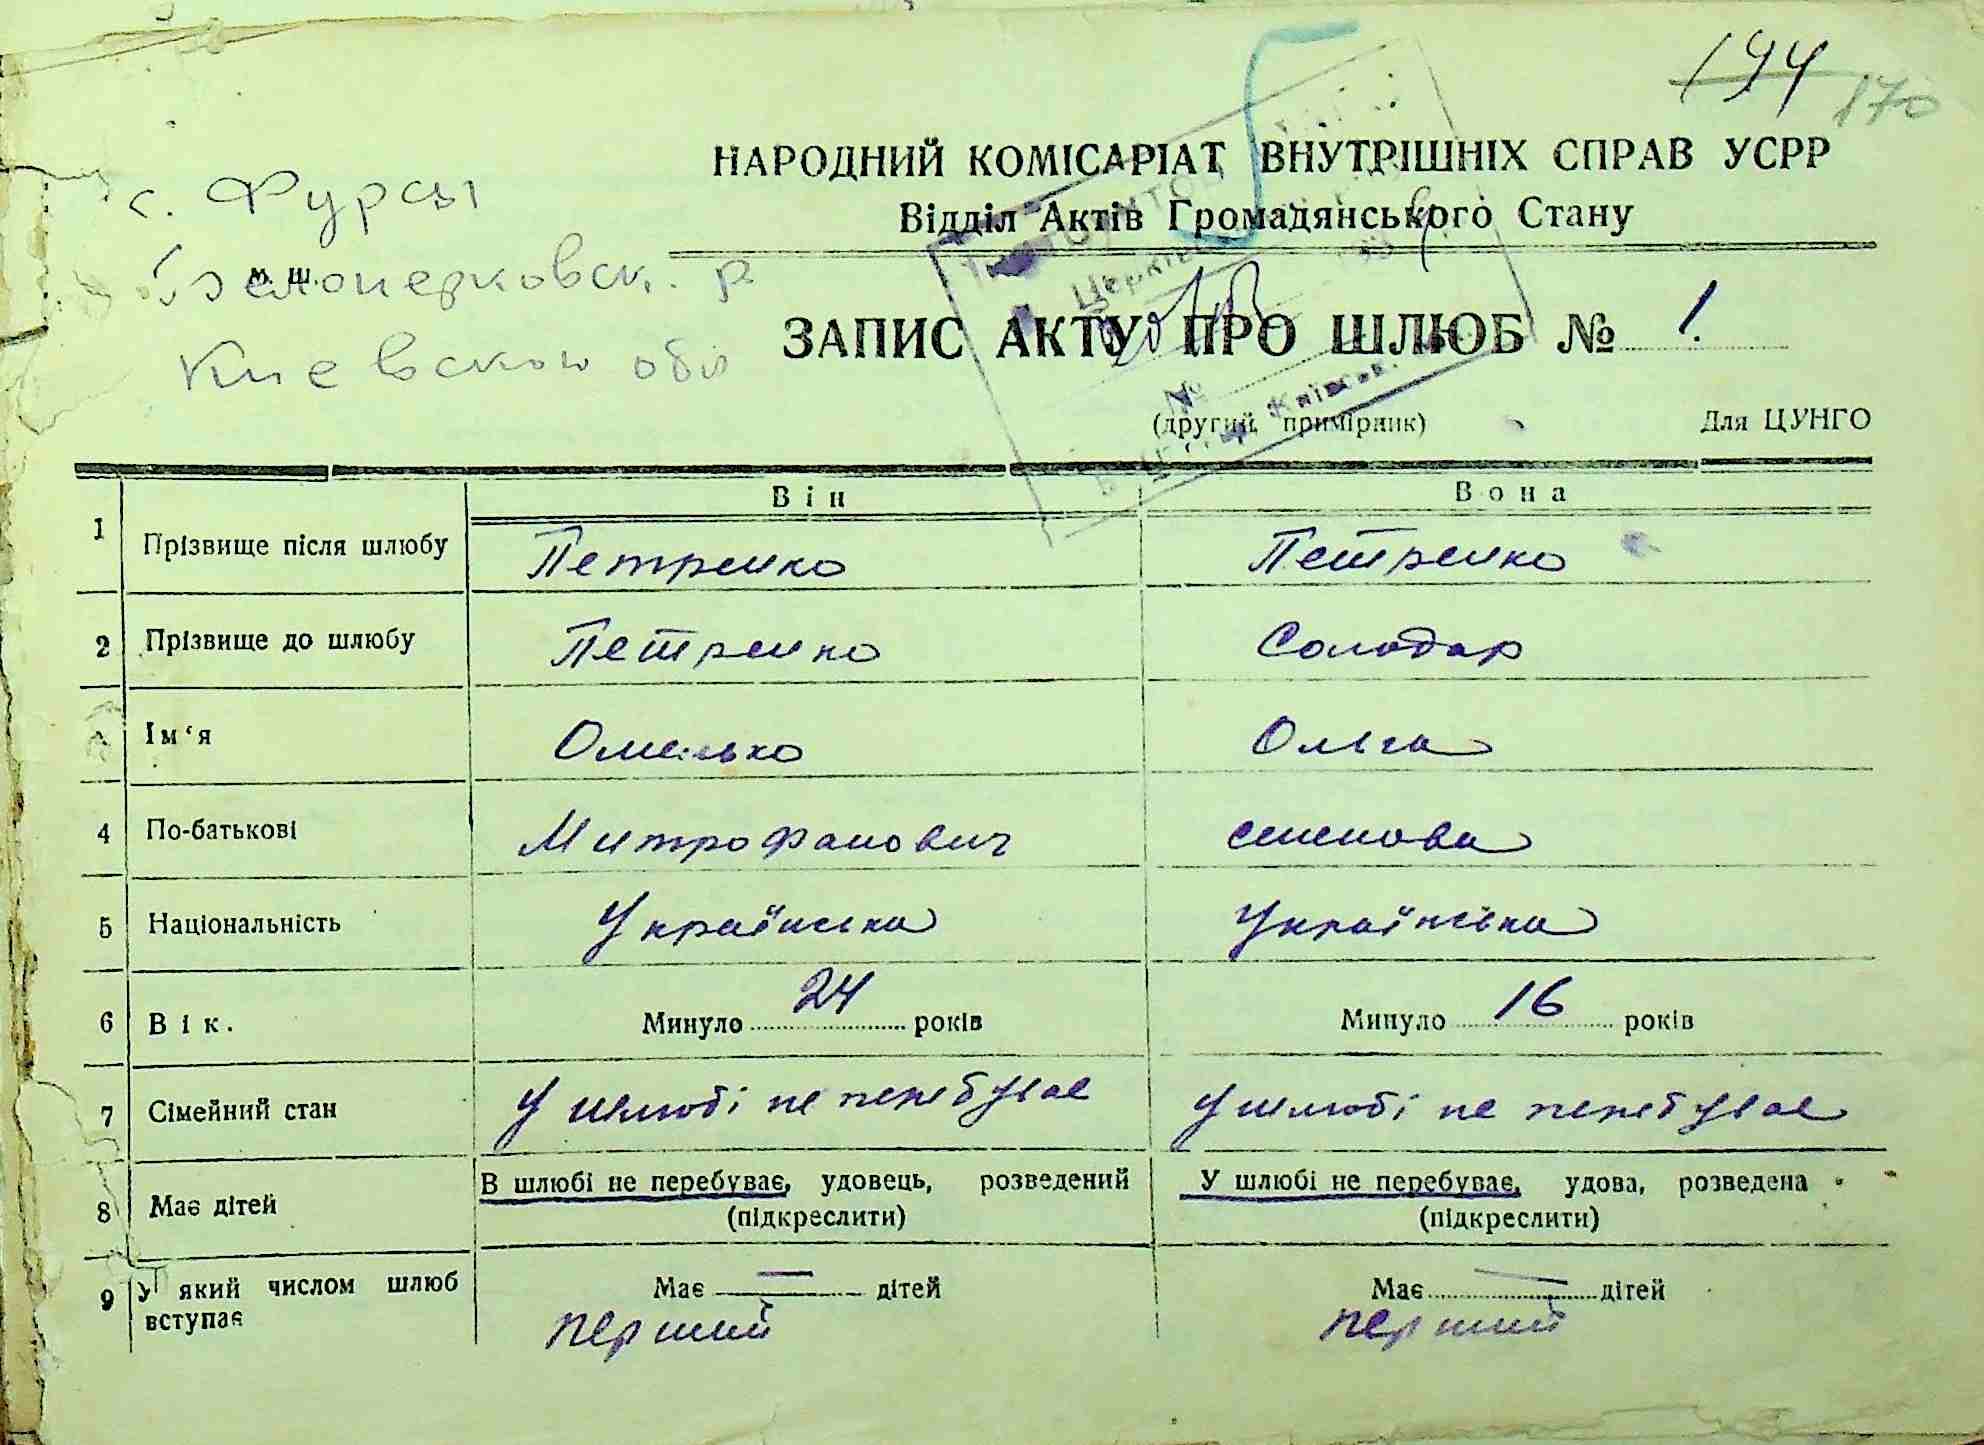 144
170
НАРОДНИЙ КОМІСАРІАТ ВНУТРІШНІХ СПРАВ УСРР
Відділ Актів Громадянського Стану
с. Фурсы
м. ш.
Белоцерковск. р
Киевской обл
ЗАПИС АКТУ ПРО ШЛЮБ № 1.
(другий примірник) Для ЦУНГО
Він Вона
1 Прізвище після шлюбу Петренко Петренко
2 Прізвище до шлюбу Петренко Солодар
Ім‘я Омелько Ольга
4 По-батькові Митрофанович Семенова
5 Національність Українська Українська
6 Вік. Минуло 24 років Минуло 16 років
7 Сімейний стан У шлюбі не перебуває У шлюбі не перебуває
8 Має дітей В шлюбі не перебуває, удовець, розведений У шлюбі не перебуває, удова, розведена
(підкреслити) (підкреслити)
9 У який числом шлюб вступає Має — дітей Має — дітей
перший перший